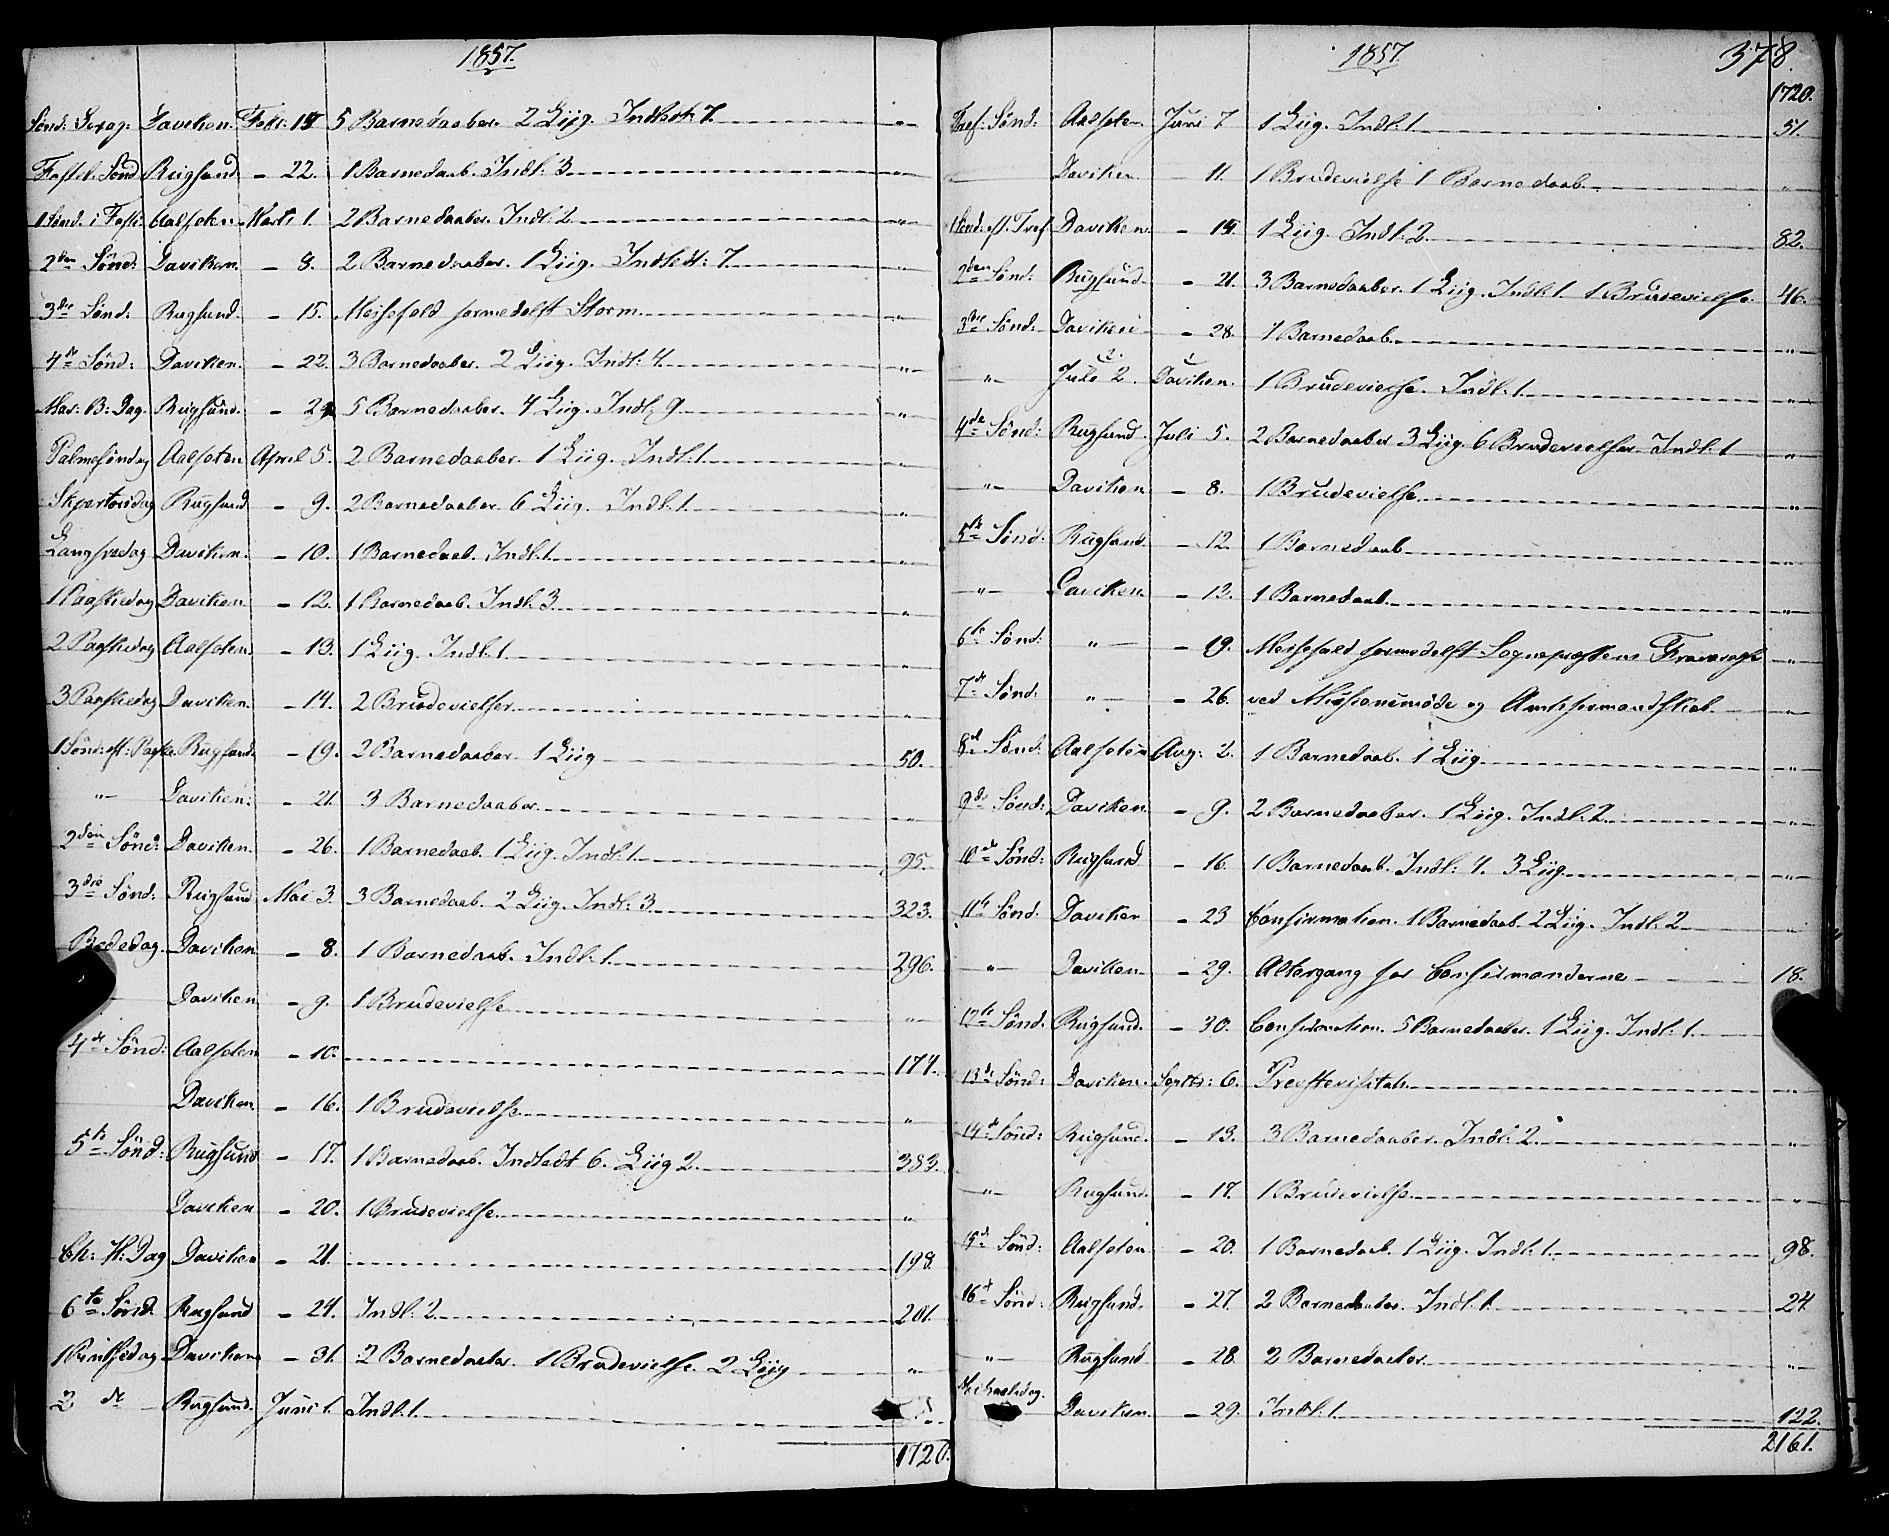 1857.
Sønd: Sexag: Daviken. Febr: 15 5 Barnedaaber. 2 Liig. Indledt 7 "
Fastel. Sønd Rugsund. - 22. 1 Barnedaab. Indl: 3 "
1 Sønd. i Faste Aalfoten Marts 1. 2 Barnedaaber. Indl: 2 "
2den Sønd: Daviken. - 8. 2 Barnedaaber. 1 Liig. Indledt: 7 "
3die Sønd: Rugsund. - 15. Messefald formedelst Storm "
4de Sønd: Daviken. - 22. 3 Barnedaaber. 2 Liig. Indl: 4 "
Mar: B: Dag. Rugsund. - 29 5 Barnedaaber. 4 Liig. Indl: 9 "
Palmesøndag Aalfoten April 5. 2 Barnedaaber. 1 Liig. Indl: 1 "
Skjertorsdag Rugsund - 9. 2 Barnedaaber. 6 Liig. Indl: 1 "
Langfredag Daviken. - 10. 1 Barnedaab. Indl: 1 "
1 Paaskedag Daviken. - 12. 1 Barnedaab. Indl: 3 "
2 Paaskedag Aalfoten. - 13. 1 Liig. Indl: 1 "
3 Paaskedag Daviken. - 14. 2 Brudevielser. "
1 Sønd: eft: Paaske Rugsund. - 19. 2 Barnedaaber. 1 Liig 50.
"- Daviken: - 21. 3 Barnedaaber. "
2den Sønd: Daviken. - 26. 1 Barnedaab. 1 Liig. Indl: 1 95.
3die Sønd: Rugsund. Mai 3. 3 Barnedaab. 2 Liig. Indl: 3 323.
Bededag. Daviken - 8. 1 Barnedaab. Indl: 1. 296.
- Daviken - 9. 1 Brudevielse "
4de Sønd: Aalfoten - 10. 174.
Daviken - 16. 1 Brudevielse "
5te Sønd: Rugsund - 17. 1 Barnedaab. Indledt 6. Liig 2. 383.
Daviken - 20. 1 Brudevielse "
Ch: H: Dag Daviken - 21. 198.
6te Sønd: Rugsund - 24. Indl: 2 201.
1 Pintsedag Daviken - 31. 2 Barnedaaber. 1 Brudevielse. 2 Liig "
2 de - Rugsund. Juni 1. Indl: 1
1720.
1857.
378.
1720.
Tref: Sønd. Aalfoten. Juni 7 1 Liig. Indl: 1. 51.
Daviken - 11. 1 Brudevielse 1 Barnedaab. "
1 Sønd. eft. Tref. Daviken. - 14. 1 Liig. Indl: 2. 82.
2den Sønd: Rugsund. - 21. 3 Barnedaaber. 1 Liig. Indl: 1. 1 Brudevielse. 46.
3die Sønd: Daviken - 28. 1 Barnedaab. "
"- Juli 2. Daviken. 1 Brudevielse. Indl: 1. "
4de Sønd: Rugsund. Juli 5. 2 Barnedaaber 3 Liig 6 Brudevielser. Indl: 1 "
"- Daviken - 8. 1 Brudevielse. "
5te Sønd: Rugsund. - 12. 1 Barnedaab "
"- Daviken. - 13. 1 Barnedaab. "
6te Sønd: "- - 19. Messefald formedelst Sognepræstens Fraværelse "
7de Sønd: "- - 26. ved Missionsmøde og Amtsformandskab. "
8de Sønd: Aalfoten Aug: 2. 1 Barnedaab. 1 Liig "
9de Sønd: Daviken - 9. 2 Barnedaaber. 1 Liig. Indl: 2. "
10de Sønd: Rugsund - 16. 1 Barnedaab. Indl: 4. 3 Liig "
11te Sønd. Daviken - 23 Confirmation. 1 Barnedaab. 2 Liig. Indl: 2 "
"- Daviken - 29. Altergang for Confirmanderne 18.
12te Sønd. Rugsund. - 30. Confirmation. 5 Barnedaaber. 1 Liig. Indl: 1.
13de Sønd: Daviken. Septbr: 6. Provstevisitats "
14de Sønd: Rugsund. - 13. 3 Barnedaaber. Indl: 2. "
"- Rugsund. - 17. 1 Brudevielse. "
15de Sønd: Aalfoten - 20. 1 Barnedaab. 1 Liig. Indl: 1. 98.
16de Sønd: Rugsund. - 27. 2 Barnedaaber. Indl: 1. 24.
"- Rugsund - 28. 2 Barnedaaber. "
Michaelsdag. Daviken. - 29. Indl: 1. 122.
2161.